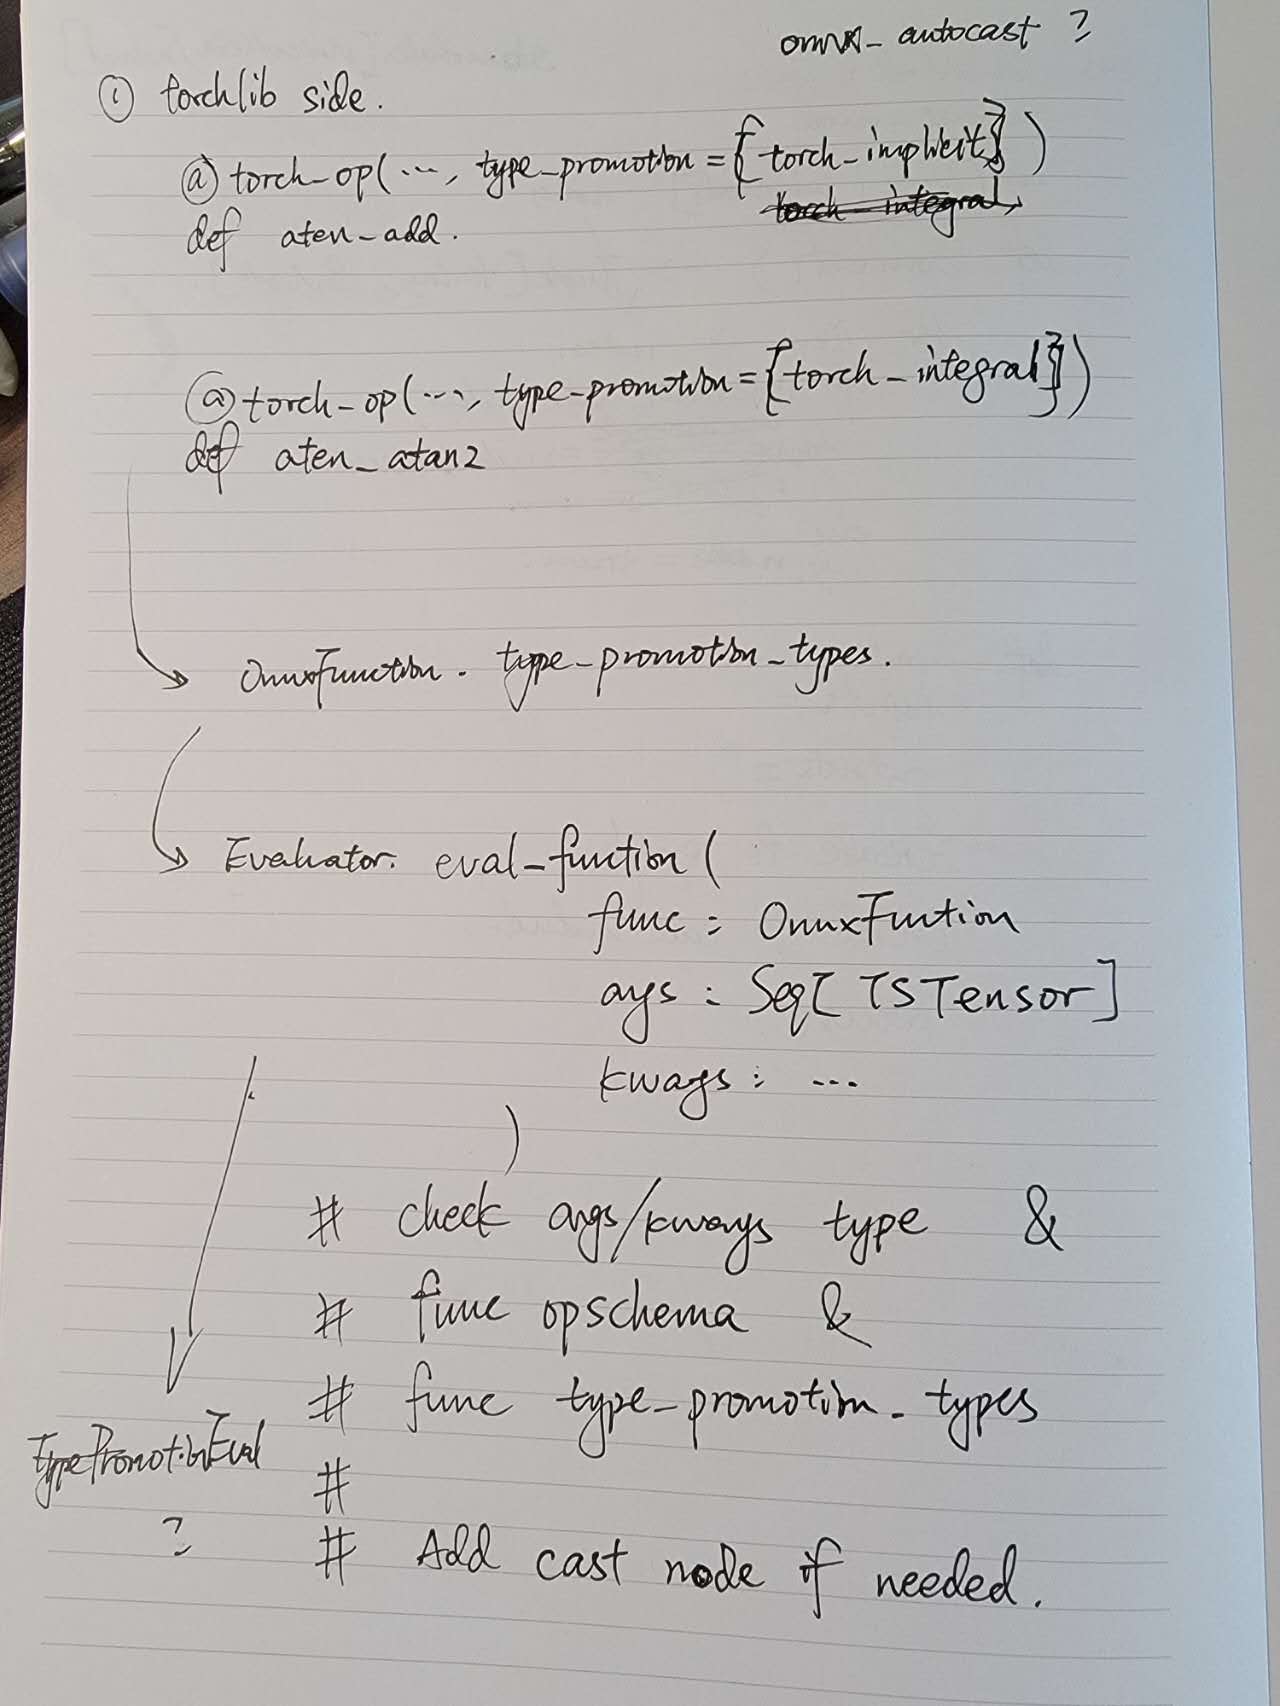 onnx_autocast ?
① torchlib side.
@torch_op(..., type_promotion={torch_implicit})
torch_integral,
def aten_add.
@torch_op(..., type_promotion={torch_integral})
def aten_atan2
OnnxFunction. type_promotion_types.
Evaluator. eval_function(
func: OnnxFuntion
args: Seq[TSTensor]
kwargs: ...
)
# check args/kwargs type &
# func opschema &
# func type_promotion_types
TypePromotionEval
#
?
# Add cast node if needed.